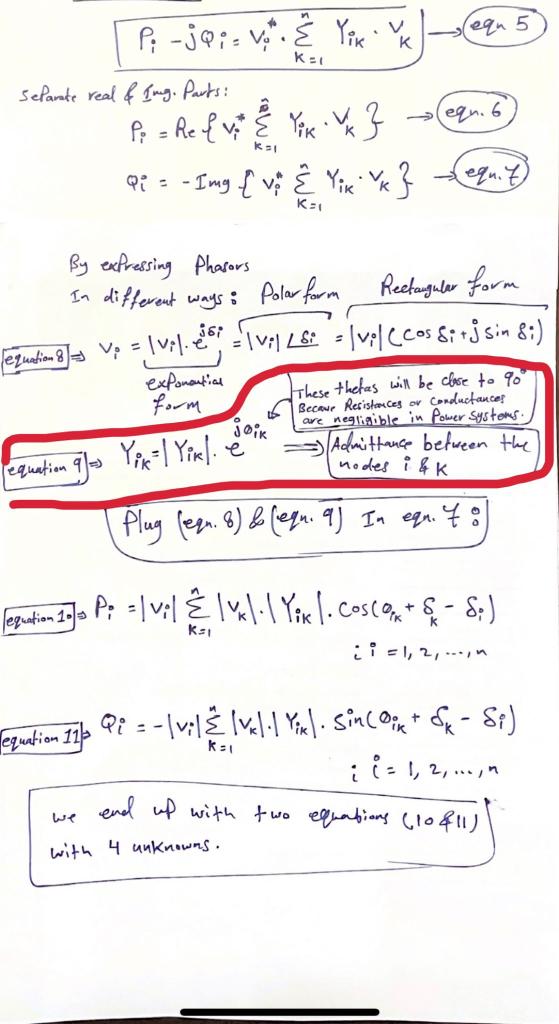 Pᵢ - jQᵢ = Vᵢ* · Σ_{K=1}^{n} Yᵢₖ · Vₖ → eqn 5
Separate real & Img. Parts:
Pᵢ = Re { Vᵢ* Σ_{K=1}^{n} Yᵢₖ · Vₖ } → eqn. 6
Qᵢ = - Img { Vᵢ* Σ_{K=1}^{n} Yᵢₖ · Vₖ } → eqn. 7
By expressing Phasors
In different ways : Polar form Rectangular form
equation 8 ⇒ Vᵢ = |Vᵢ| · e^{jδᵢ} = |Vᵢ| ∠δᵢ = |Vᵢ| (Cos δᵢ + j Sin δᵢ)
exponential
form
These thetas will be close to 90°
Because Resistances or Conductances
are negligible in Power Systems.
equation 9 ⇒ Yᵢₖ = |Yᵢₖ| · e^{jθᵢₖ} ⇒ Admittance between the
nodes i & K
Plug (eqn. 8) & (eqn. 9) In eqn. 7 :
equation 10 ⇒ Pᵢ = |Vᵢ| Σ_{K=1}^{n} |Vₖ| · |Yᵢₖ| · Cos(θᵢₖ + δₖ - δᵢ)
; i = 1, 2, ..., n
equation 11 ⇒ Qᵢ = -|Vᵢ| Σ_{K=1}^{n} |Vₖ| · |Yᵢₖ| · Sin(θᵢₖ + δₖ - δᵢ)
; i = 1, 2, ..., n
we end up with two equations (10 & 11)
with 4 unknowns.